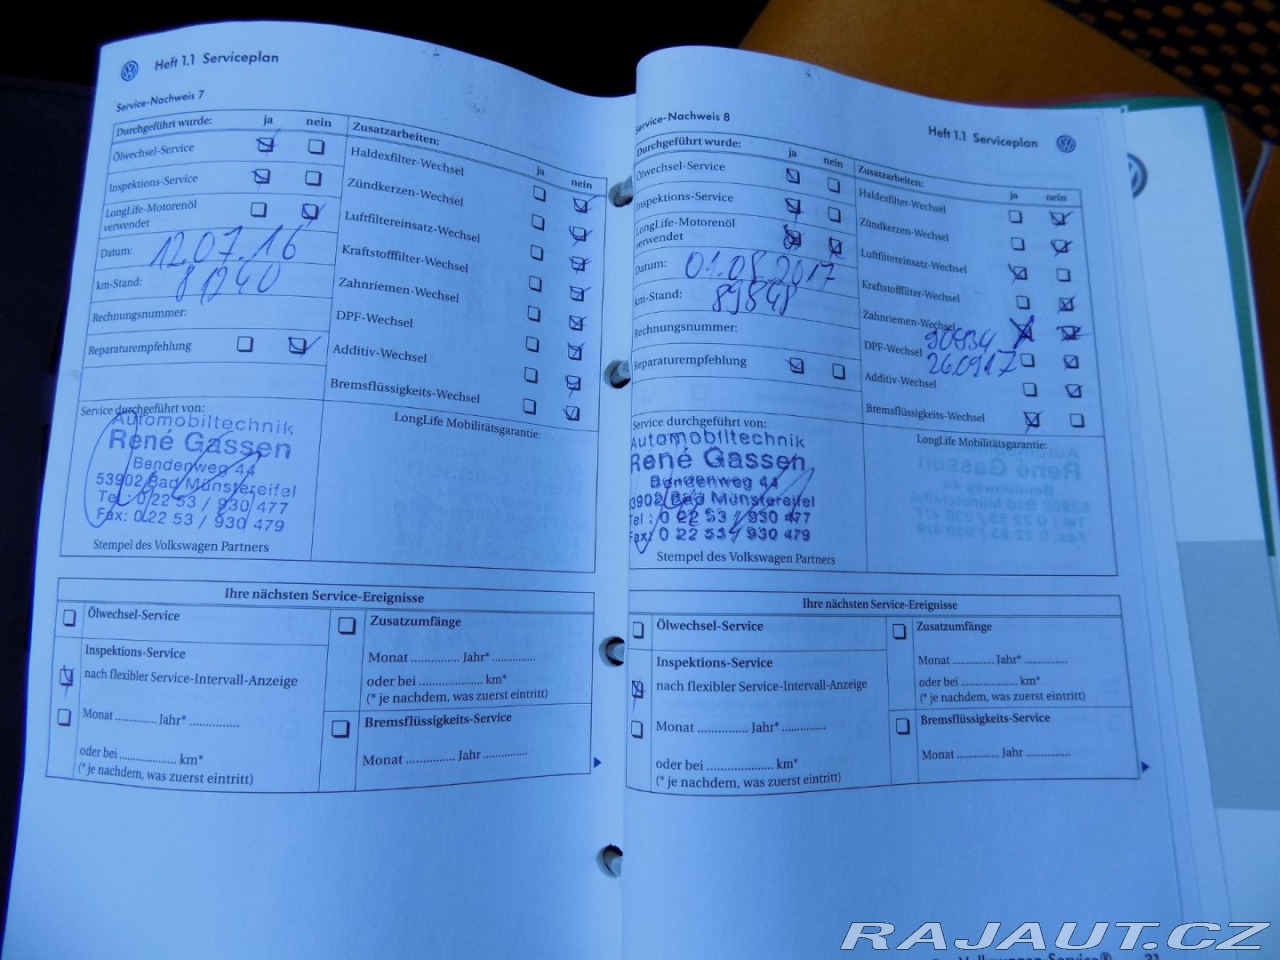 Heft 1.1 Serviceplan
Service-Nachweis 7
Durchgeführt wurde: ja nein
Ölwechsel-Service
Inspektions-Service
LongLife-Motorenöl
verwendet
Datum: 12.07.16
km-Stand: 81240
Rechnungsnummer:
Reparaturempfehlung
Zusatzarbeiten:
ja nein
Haldexfilter-Wechsel
Zündkerzen-Wechsel
Luftfiltereinsatz-Wechsel
Kraftstofffilter-Wechsel
Zahnriemen-Wechsel
DPF-Wechsel
Additiv-Wechsel
Bremsflüssigkeits-Wechsel
Service durchgeführt von:
Automobiltechnik
René Gassen
Bendenweg 44
53902 Bad Münstereifel
Tel: 0 22 53 / 930 477
Fax: 0 22 53 / 930 479
Stempel des Volkswagen Partners
LongLife Mobilitätsgarantie:
Ihre nächsten Service-Ereignisse
Ölwechsel-Service
Inspektions-Service
nach flexibler Service-Intervall-Anzeige
Monat ............. Jahr* ...............
oder bei .................... km*
(* je nachdem, was zuerst eintritt)
Zusatzumfänge
Monat ............... Jahr* .............
oder bei .................... km*
(* je nachdem, was zuerst eintritt)
Bremsflüssigkeits-Service
Monat ............... Jahr .............
Service-Nachweis 8
Heft 1.1 Serviceplan
Durchgeführt wurde: ja nein
Ölwechsel-Service
Inspektions-Service
LongLife-Motorenöl
verwendet
Datum: 01.08.2017
km-Stand: 89848
Rechnungsnummer:
Reparaturempfehlung
Zusatzarbeiten:
ja nein
Haldexfilter-Wechsel
Zündkerzen-Wechsel
Luftfiltereinsatz-Wechsel
Kraftstofffilter-Wechsel
Zahnriemen-Wechsel
90834
DPF-Wechsel
26.09.17
Additiv-Wechsel
Bremsflüssigkeits-Wechsel
Service durchgeführt von:
Automobiltechnik
René Gassen
Bendenweg 44
53902 Bad Münstereifel
Tel : 0 22 53 / 930 477
Fax: 0 22 53 / 930 479
Stempel des Volkswagen Partners
LongLife Mobilitätsgarantie:
Ihre nächsten Service-Ereignisse
Ölwechsel-Service
Inspektions-Service
nach flexibler Service-Intervall-Anzeige
Monat ............... Jahr* .............
oder bei .................... km*
(* je nachdem, was zuerst eintritt)
Zusatzumfänge
Monat ............... Jahr* .............
oder bei .................... km*
(* je nachdem, was zuerst eintritt)
Bremsflüssigkeits-Service
Monat ............... Jahr .............
RAJAUT.CZ